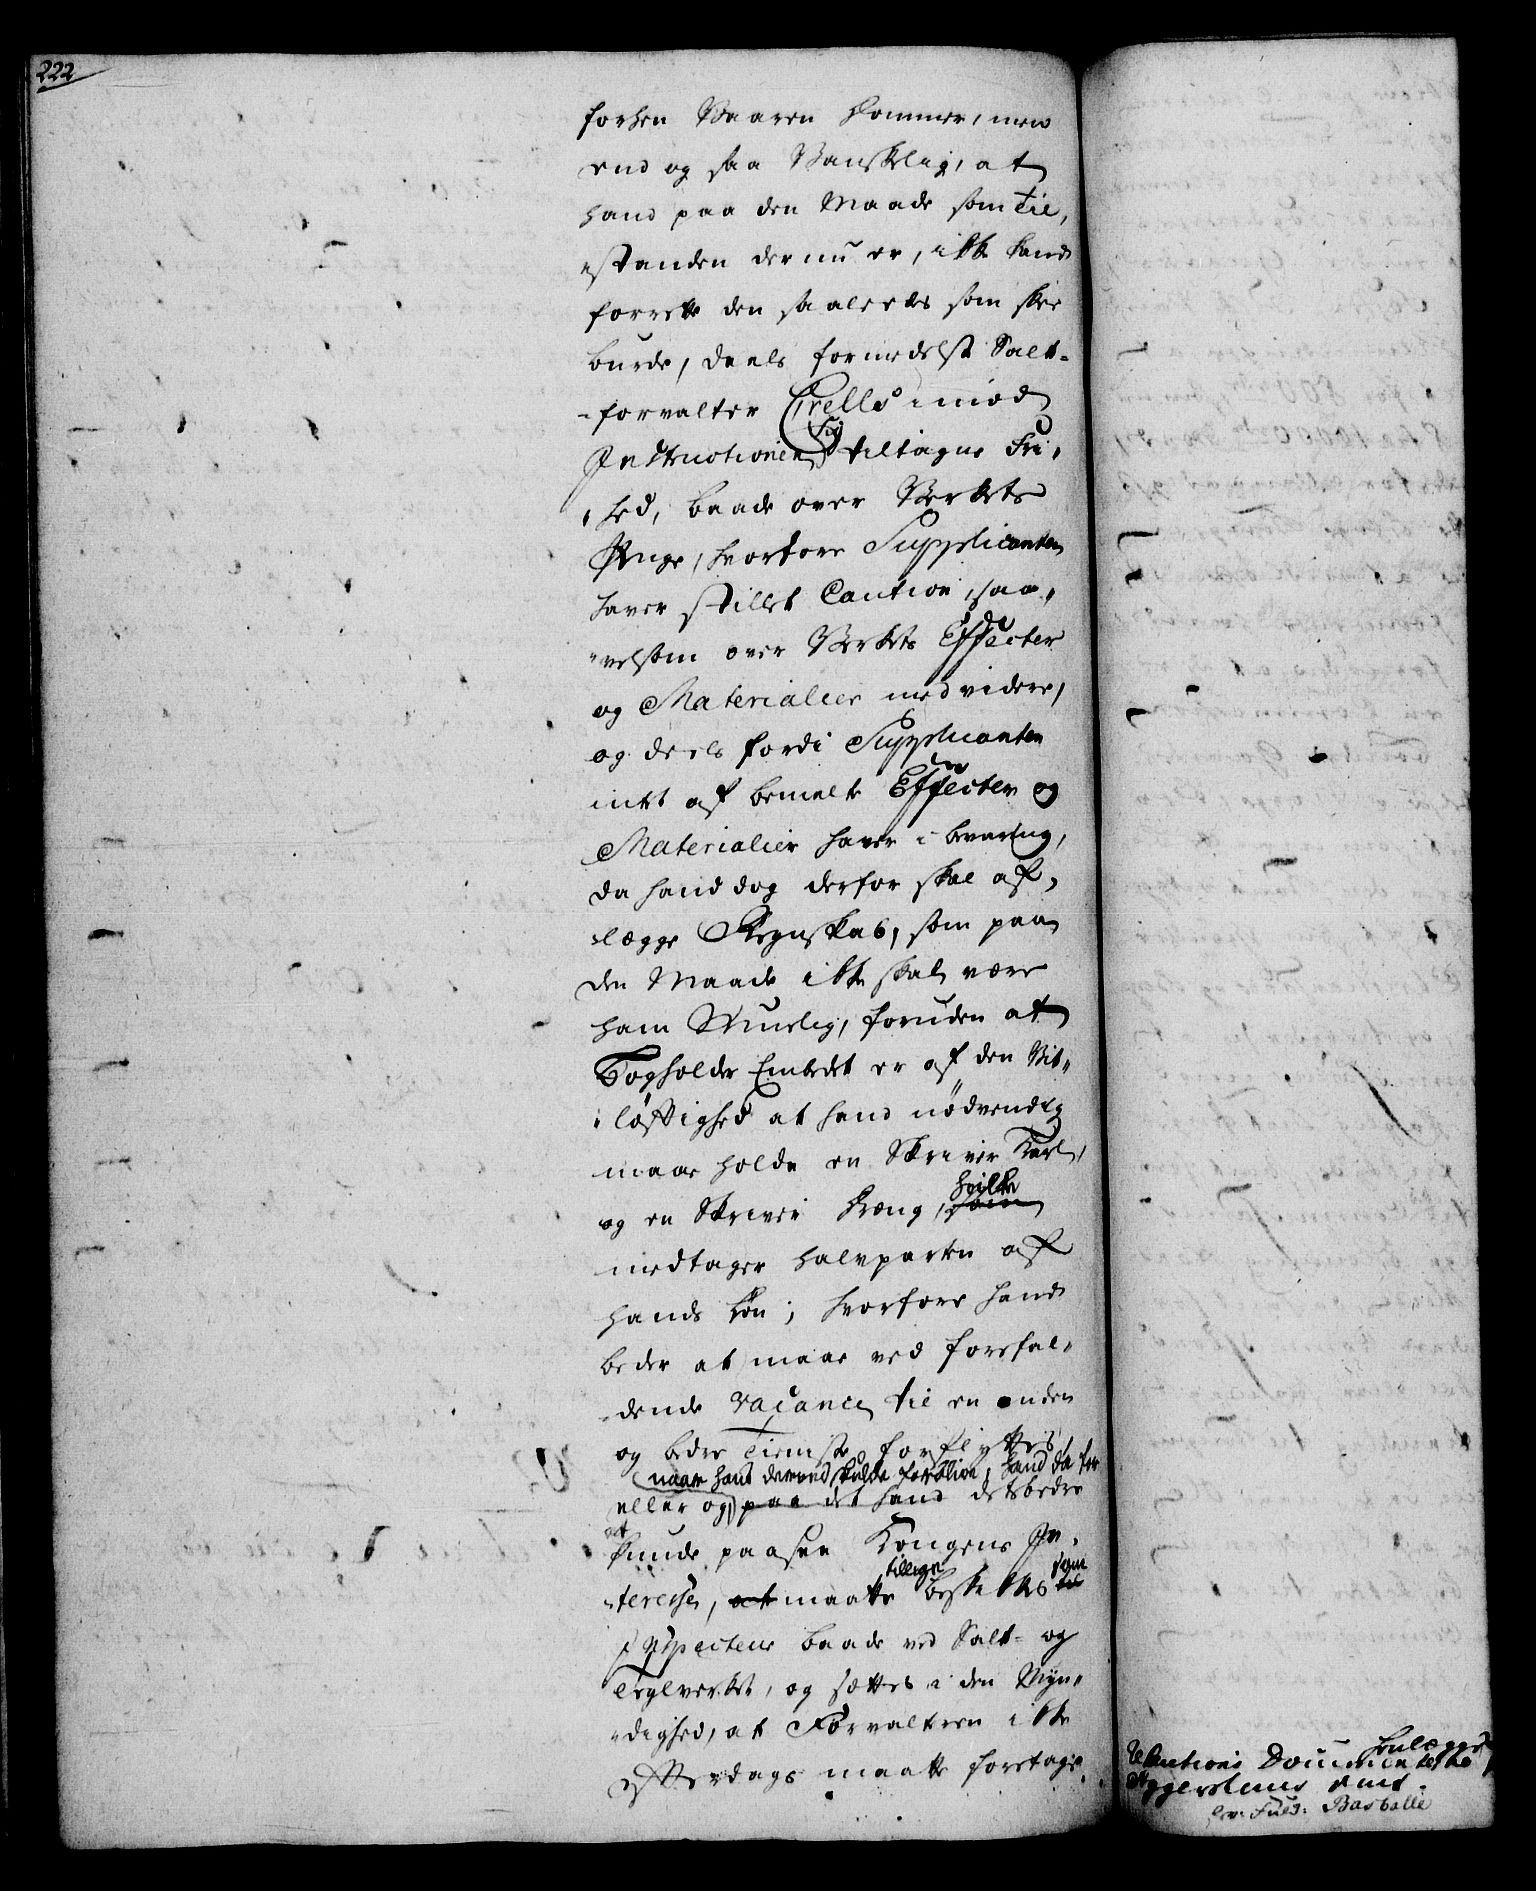 222
forhen Waaren kommer, men
end og saa Vanskelig, at
hand paa den Maade som Til,
"standen der nu er, ikke kand
forrette den saaledes som skee
burde, deels formedelst Salt-
-forvalter Crells imod
Instructionen sig tiltagne Fri,
"hed, baade over Verkets
Penge, hvorfore Supplicanten
haver stillet Caution, saa,
"velsom over Verkets Effecter
og Materialier med videre,
og deels fordi Supplicanten
intet af bemelte Effecter og
Materialier haver i bevaring,
da hand dog derfor skal af,
-lægge Regnskab, som paa
den Maade ikke skal være
ham Muelig, foruden at
Bogholder Embedet er af den Vit,
"løftighed at hand nödvendig
maae holde en Skriver Karl,
hvilke
og en Skriver Dreng, som
medtager halvparten af
hands Løn; hvorfore hand
beder at maae ved forefal,
-dende vacance til en anden
og bedre Tieniste forflyttes,
naar hand derved skulde forblive, hand da for
eller og, paa det hand desbedre
at
kunde paasee Kongens In,
tillige som
-teresse, at maatte beskikkes til
Inspecteur baade ved Salt- og
Teglverket, og sættes i den Myn,
"dighed, at Forvalteren ikke
efterdags maatte foretage
henlægges
Cautions Documenterne
Aggershuus Amt.
Basballe